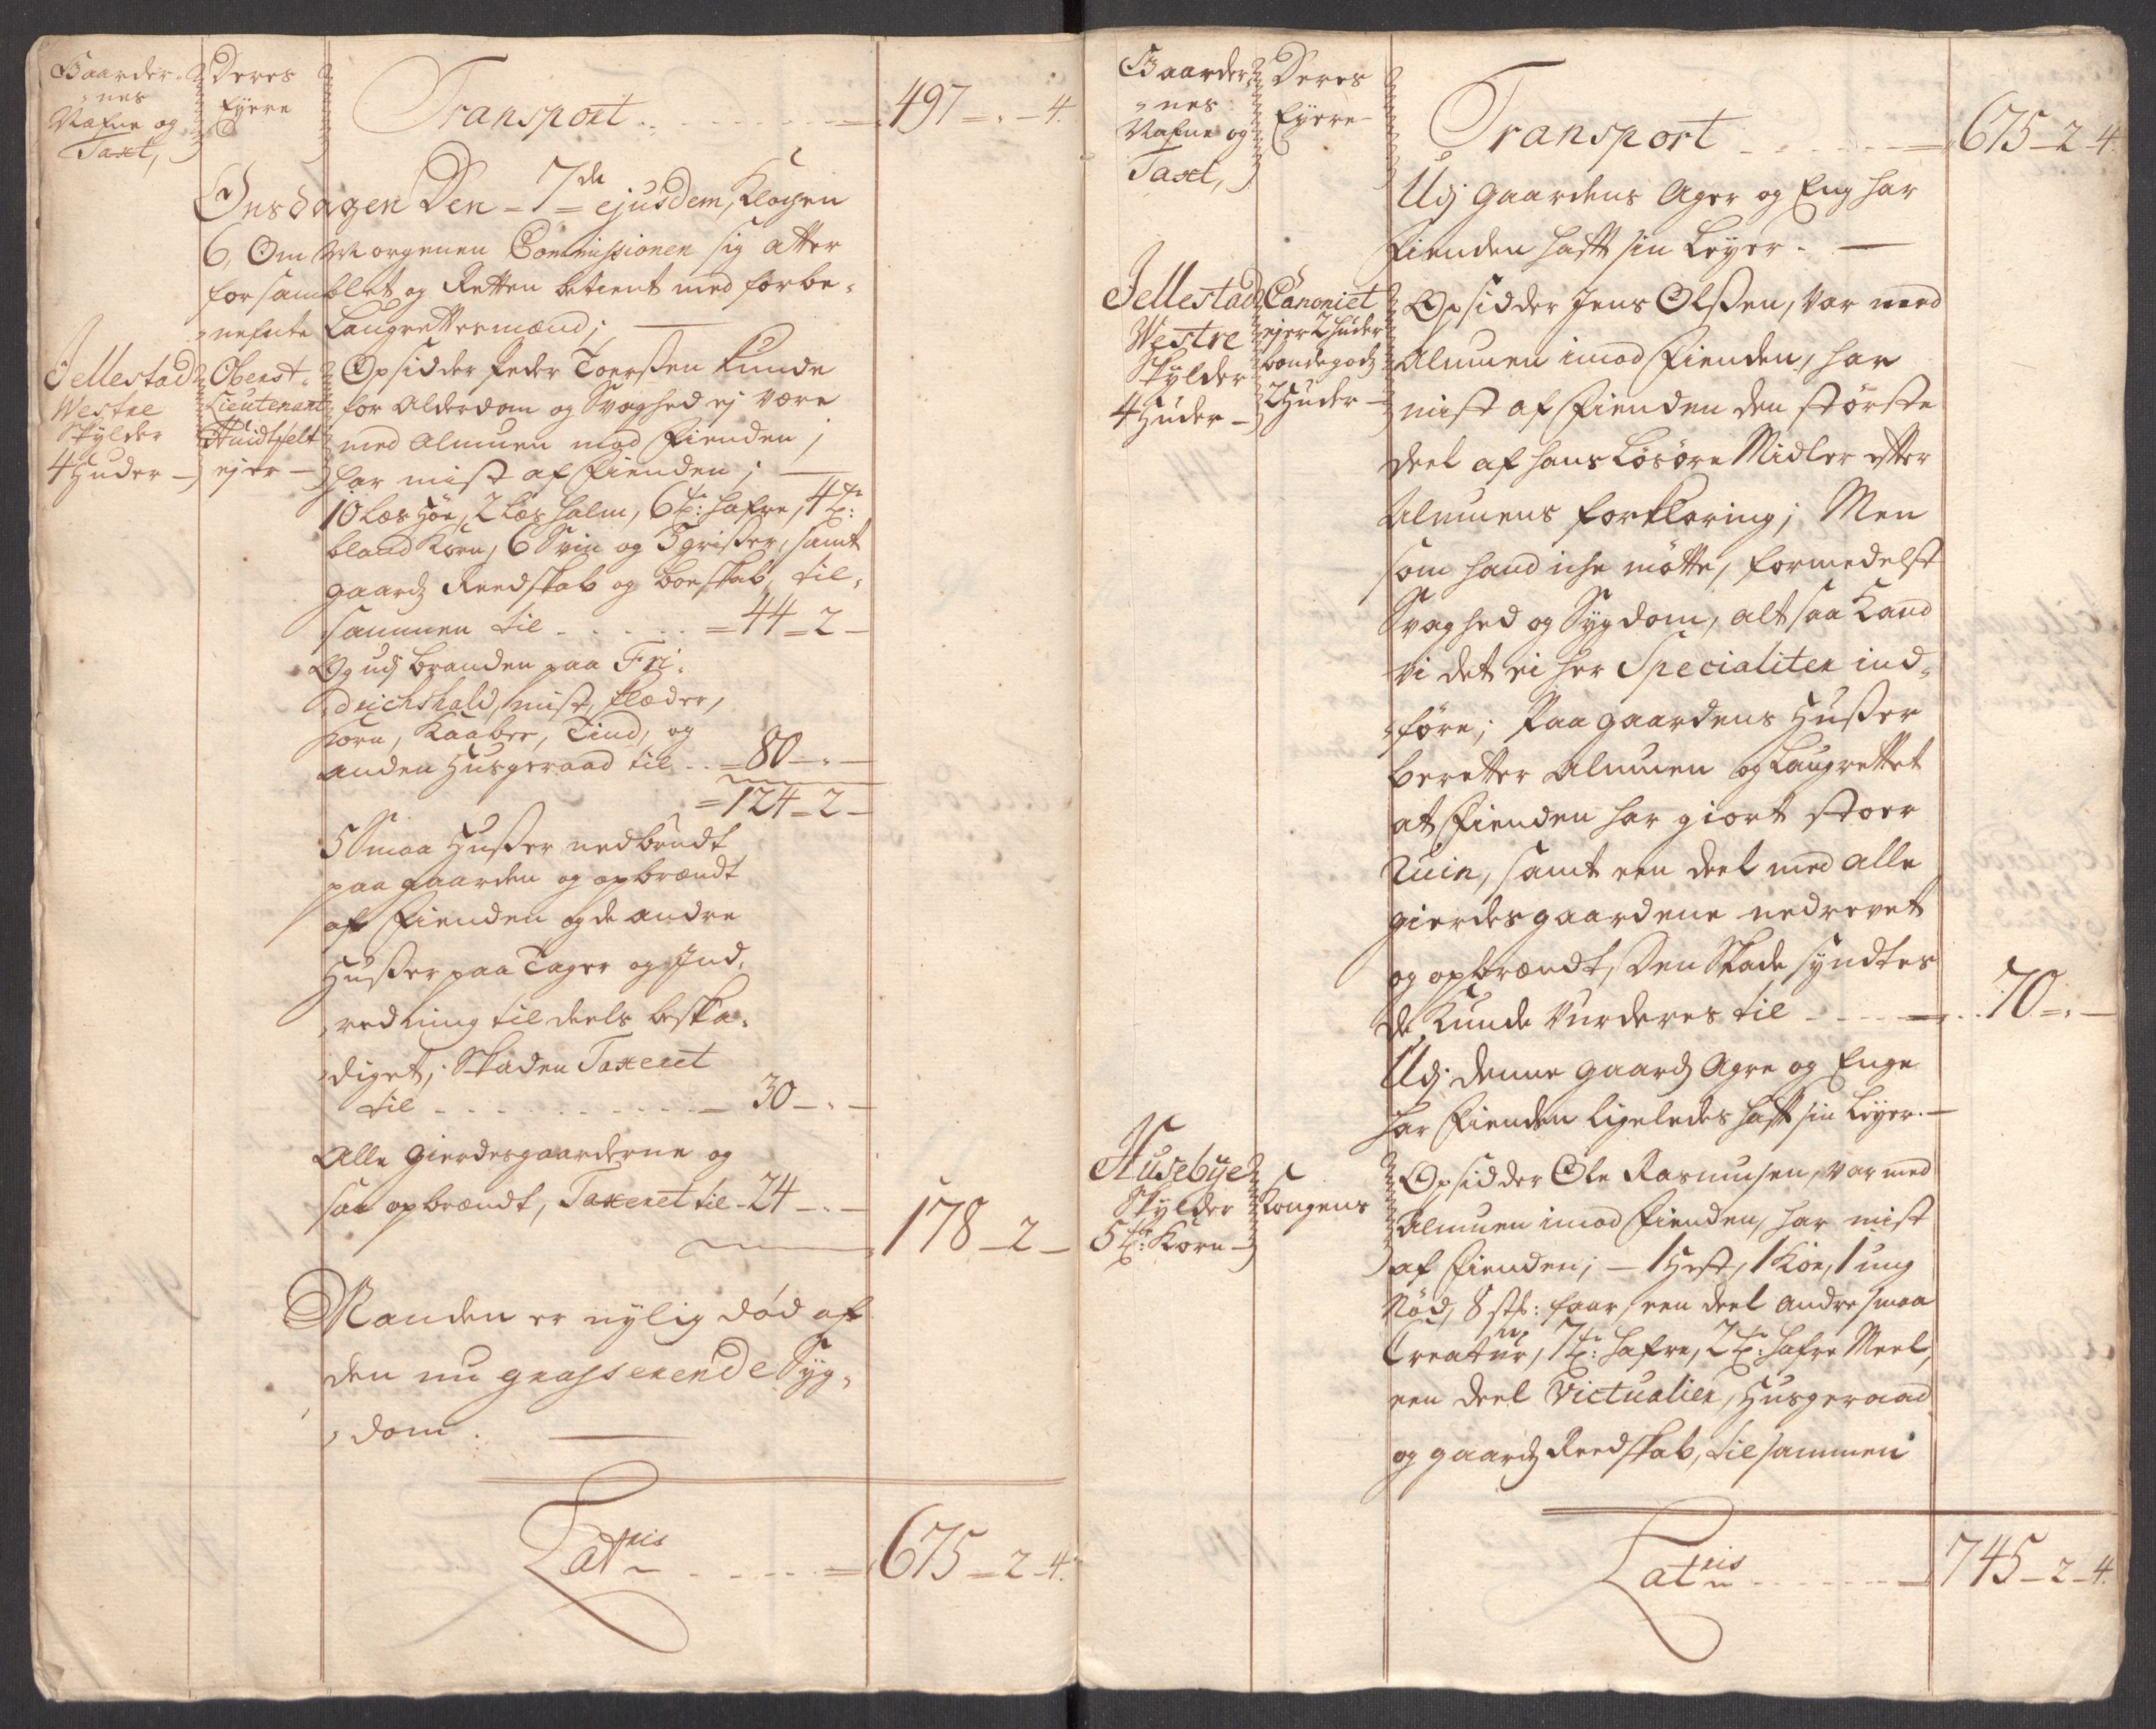 Gaarder-
nes
Nafne og
Taxt,
Deres
Eyere
Transport . . . . . 497 - . - 4.
Onsdagen Den 7de ejusdem, Klochen
6, Om Morgenen Commissionen sig atter
forsamblet og Retten betient med forbe-
nefnte Laugrettesmænd; —
Jellestad
Westre
Skylder
4 Huder -
Oberst-
Lieutenant
Huidtfelt
ejer -
Opsidder Peder Toerssen kunde
for Alderdom og Svaghed ej være
med Almuen mod Fienden;
har mist af Fienden; —
10 Læs Høe, 2 Læs Halm, 6 tr: Hafre, 4 tr:
bland Korn, 6 Svin og 3 grisser, samt
gaards Reedskab og boeskab, til-
sammen til . . . . . = 44 - 2 -
Og udj branden paa Fri-
derichshald, mist, klæder,
Korn, Kaaber, Tind, og
anden Husgeraad til . . = 80 - . -
= 124 - 2 -
5 Smaa Husser nedbrudt
paa gaarden og opbrændt
af Fienden og de andre
Husser paa Tager og Ind-
redning til deels beska-
diget; Skaden Taxeret
til . . . . . . 30 - . -
Alle gierdesgaarderne og
saa opbrændt, Taxeret til - 24 - . -
178 - 2 -
Manden er nylig død af
den nu grasserende Syg-
dom. —
Latris . . . . . = 675 - 2 - 4.
Gaarder-
nes
Nafne og
Taxt,
Deres
Eyere
Transport . . . . . 675 - 2 - 4.
Udj gaardens Ager og Eng har
Fienden hafft sin Leyer. —
Jellestad
Westre
Skylder
4 Huder -
Canoniet
ejer 2 Huder
bondegods
2 Huder -
Opsidder Jens Olssen, var med
Almuen imod Fienden, har
mist af Fienden den største
deel af hans Løsøre Midler efter
Almuens forklaring; Men
som hand iche møtte, formedelst
Svaghed og Sygdom, alt saa Kand
vi det ei her Specialiter ind-
føre; Paa gaardens Husser
beretter Almuen og Laugrettet
at Fienden har giort stoer
Ruin, samt een deel med alle
gierdesgaardene nedrevet
og opbrændt, Den Skade syndtes
de Kunde Vurderes til . . . . . 70 - . -
Udj denne gaards Agre og Enge
har Fienden ligeledes hafft sin Leyer. —
Husebye
Skylder
5 tr: Korn -
Kongens
Opsidder Ole Rasmusen, var med
Almuen imod Fienden, har mist
af Fienden; — 1 Hest, 1 Køe, 1 ung
Nød, 8 stk: faar, een deel andre smaa
Creatur, 7 tr: Hafre, 2 tr: Hafre Meel,
een deel Victualier, Husgeraad
og gaards Reedskab, tilsammen
Latris . . . . . 745 - 2 - 4.